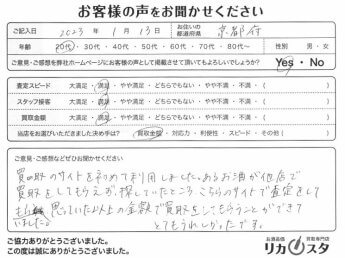 お客様の声をお聞かせください
ご記入日 2023年 1月 13日 お住いの都道府県 京都府
年齢 20代・30代・40代・50代・60代・70代・80代〜 性別 男・女
ご意見・ご感想を弊社ホームページにお客様の声として掲載させて頂いてもよろしいでしょうか? Yes・No
査定スピード 大満足・満足・やや満足・どちらでもない・やや不満・不満 ( )
スタッフ接客 大満足・満足・やや満足・どちらでもない・やや不満・不満 ( )
買取金額 大満足・満足・やや満足・どちらでもない・やや不満・不満 ( )
当店をお選びいただきました決め手は? 買取金額・対応力・利便性・スピード・その他( )
ご意見・ご感想などぜひお聞かせください
買取のサイトを初めて利用しました。あるお酒が他店で
買取をしてもらえず探していたところ、こちらのサイトで査定をして
もらい思っていた以上の金額で買取をしてもらうことができ
とてもうれしかったです。
ご協力ありがとうございました。
この度は誠にありがとうございました。
お酒高価買取専門店
リカスタ